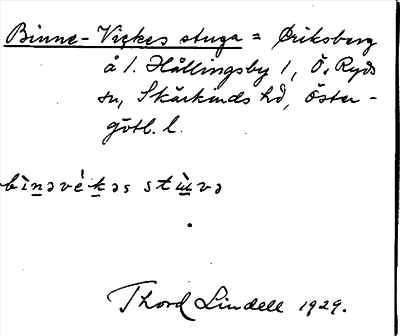 Binne-Vickes stuga = Øriksberg
å 1. Hållingsby 1, Ö. Ryds
sn, Skärkinds hd, Öster-
götl. l.
bìnəvékəs stùvə
Thord Lindell 1929.